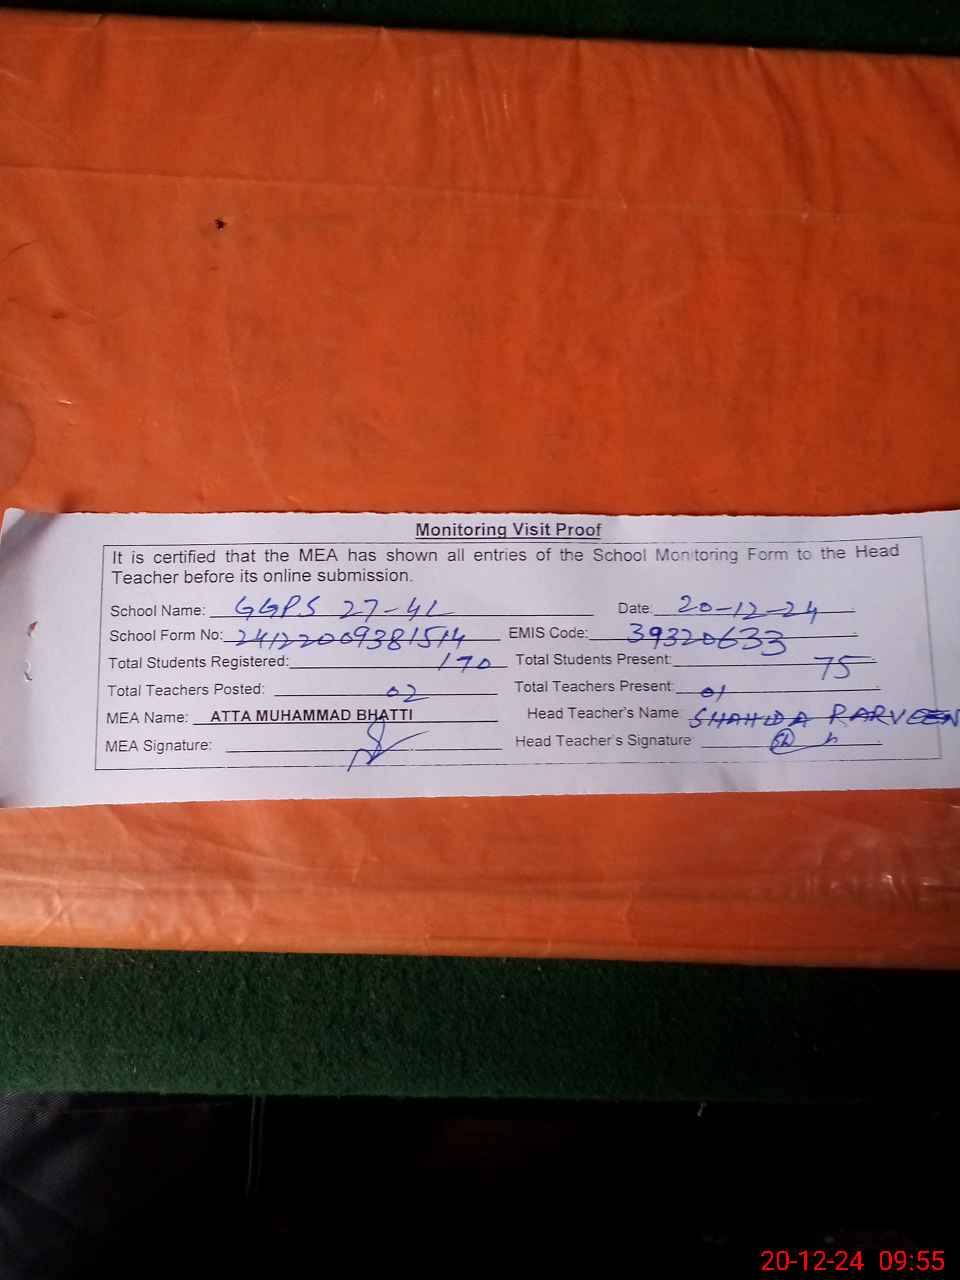 Monitoring Visit Proof
It is certified that the MEA has shown all entries of the School Monitoring Form to the Head
Teacher before its online submission.
School Name: GGPS 27-4L Date: 20-12-24
School Form No: 24122009381514 EMIS Code: 39320633
Total Students Registered: 170 Total Students Present: 75
Total Teachers Posted: 02 Total Teachers Present: 01
MEA Name: ATTA MUHAMMAD BHATTI Head Teacher's Name: SHAHIDA PARVEEN
MEA Signature: Head Teacher's Signature
20-12-24 09:55